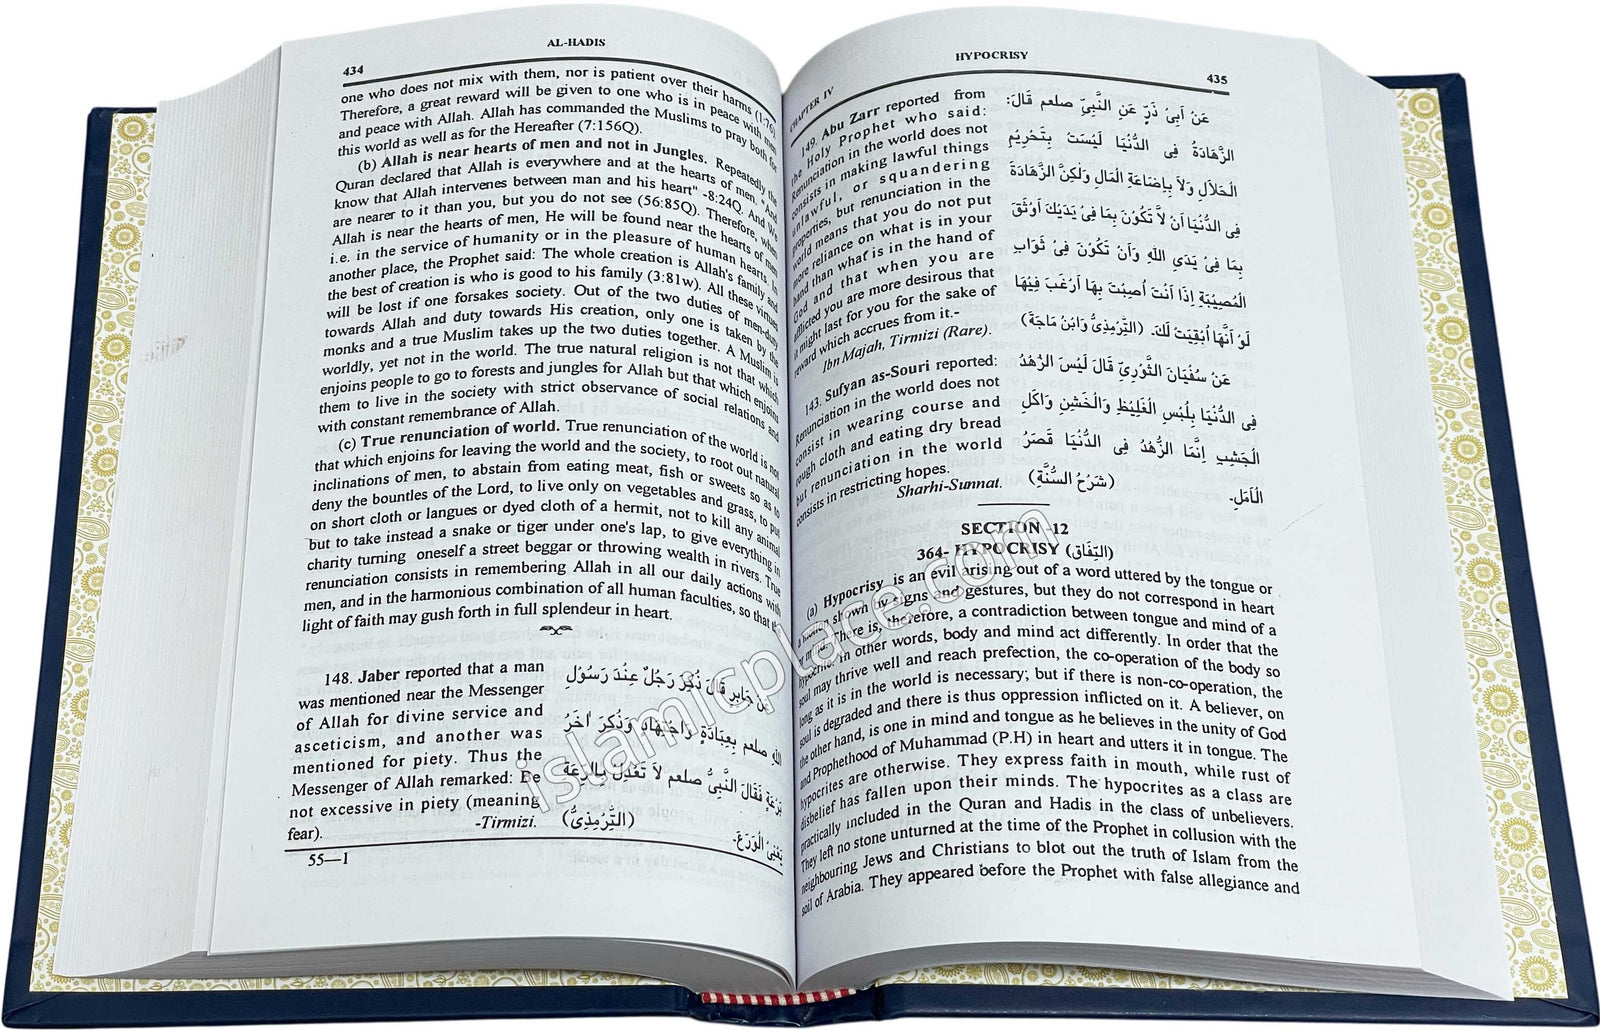 AL-HADIS
434
one who does not mix with them, nor is patient over their harms (1:76)
Therefore, a great reward will be given to one who is in peace with men
and peace with Allah. Allah has commanded the Muslims to pray both for
this world as well as for the Hereafter (7:156Q).
(b) Allah is near hearts of men and not in Jungles. Repeatedly the
Quran declared that Allah is everywhere and at the hearts of men. "And
know that Allah intervenes between man and his heart" -8:24Q. And We
are nearer to it than you, but you do not see (56:85Q). Therefore, when
Allah is near the hearts of men, He will be found near the hearts of men
i.e. in the service of humanity or in the pleasure of human hearts. In
another place, the Prophet said: The whole creation is Allah's family and
the best of creation is who is good to his family (3:81w). All these virtues
will be lost if one forsakes society. Out of the two duties of men-duty
towards Allah and duty towards His creation, only one is taken by the
monks and a true Muslim takes up the two duties together. A Muslim is
worldly, yet not in the world. The true natural religion is not that which
enjoins people to go to forests and jungles for Allah but that which enjoins
them to live in the society with strict observance of social relations and
with constant remembrance of Allah.
(c) True renunciation of world. True renunciation of the world is not
that which enjoins for leaving the world and the society, to root out natural
inclinations of men, to abstain from eating meat, fish or sweets so as to
deny the bountles of the Lord, to live only on vegetables and grass, to put
on short cloth or langues or dyed cloth of a hermit, not to kill any animal
but to take instead a snake or tiger under one's lap, to give everything in
charity turning oneself a street beggar or throwing wealth in rivers. True
renunciation consists in remembering Allah in all our daily actions with
men, and in the harmonious combination of all human faculties, so that the
light of faith may gush forth in full splendeur in heart.
148. Jaber reported that a man
was mentioned near the Messenger
of Allah for divine service and
asceticism, and another was
mentioned for piety. Thus the
Messenger of Allah remarked: Be
not excessive in piety (meaning
fear). -Tirmizi.
جابر قَالَ ذُكِرَ رَجُلٌ عِنْدَ رَسُوْلِ
اللهِ صلعم بِعِبَادَةٍ وَاجْتِهَادٍ وَذُكِرَ اٰخَرُ
بِرِعَةٍ فَقَالَ النَّبِىُّ صلعم لاَ تَعْدِلْ بِالرِّعَةِ
يَعْنِىْ الْوَرَعَ۔ (اَلتِّرْمِذِىْ)
55—1
HYPOCRISY
435
CHAPTER IV
149. Abu Zarr reported from
the Holy Prophet who said:
Renunciation in the world does not
consists in making lawful things
unlawful, or squandering
properties, but renunciation in the
world means that you do not put
more reliance on what is in your
hand than what is in the hand of
God and that when you are
afflicted you are more desirous that
it might last for you for the sake of
reward which accrues from it.-
Ibn Majah, Tirmizi (Rare).
عَنْ اَبِىْ ذَرٍّ عَنِ النَّبِىِّ صلعم قَالَ:
الزَّهَادَةُ فِى الدُّنْيَا لَيْسَتْ بِتَحْرِيْمِ
الْحَلاَلِ وَلاَ بِاِضَاعَةِ الْمَالِ وَلٰكِنَّ الزَّهَادَةَ
فِى الدُّنْيَا اَنْ لاَّ تَكُوْنَ بِمَا فِىْ يَدَيْكَ اَوْثَقَ
بِمَا فِىْ يَدَىِ اللهِ وَاَنْ تَكُوْنَ فِىْ ثَوَابِ
الْمُصِيْبَةِ اِذَا اَنْتَ اُصِبْتَ بِهَا اَرْغَبَ فِيْهَا
لَوْ اَنَّهَا اُبْقِيَتْ لَكَ۔ (اَلتِّرْمِذِىُّ وَابْنُ مَاجَةَ)
143. Sufyan as-Souri reported:
Renunciation in the world does not
consist in wearing course and
rough cloth and eating dry bread
but renunciation in the world
consists in restricting hopes.
Sharhi-Sunnat.
عَنْ سُفْيَانَ الثَّوْرِىِّ قَالَ لَيْسَ الزُّهْدُ
فِى الدُّنْيَا بِلُبْسِ الْغَلِيْظِ وَالْخَشِنِ وَاَكْلِ
الْجَشِبِ اِنَّمَا الزُّهْدُ فِى الدُّنْيَا قَصَرُ
الْاَمَلِ۔ (شَرْحُ السُّنَّةِ)
SECTION -12
364- HYPOCRISY (النِّفَاق)
(a) Hypocrisy is an evil arising out of a word uttered by the tongue or
a notion shown by signs and gestures, but they do not correspond in heart
or mind. There is, therefore, a contradiction between tongue and mind of a
hypocrite. In other words, body and mind act differently. In order that the
soul may thrive well and reach prefection, the co-operation of the body so
long as it is in the world is necessary; but if there is non-co-operation, the
soul is degraded and there is thus oppression inflicted on it. A believer, on
the other hand, is one in mind and tongue as he believes in the unity of God
and Prophethood of Muhammad (P.H) in heart and utters it in tongue. The
hypocrites are otherwise. They express faith in mouth, while rust of
disbelief has fallen upon their minds. The hypocrites as a class are
practically included in the Quran and Hadis in the class of unbelievers.
They left no stone unturned at the time of the Prophet in collusion with the
neighbouring Jews and Christians to blot out the truth of Islam from the
soil of Arabia. They appeared before the Prophet with false allegiance and
islamicplace.com